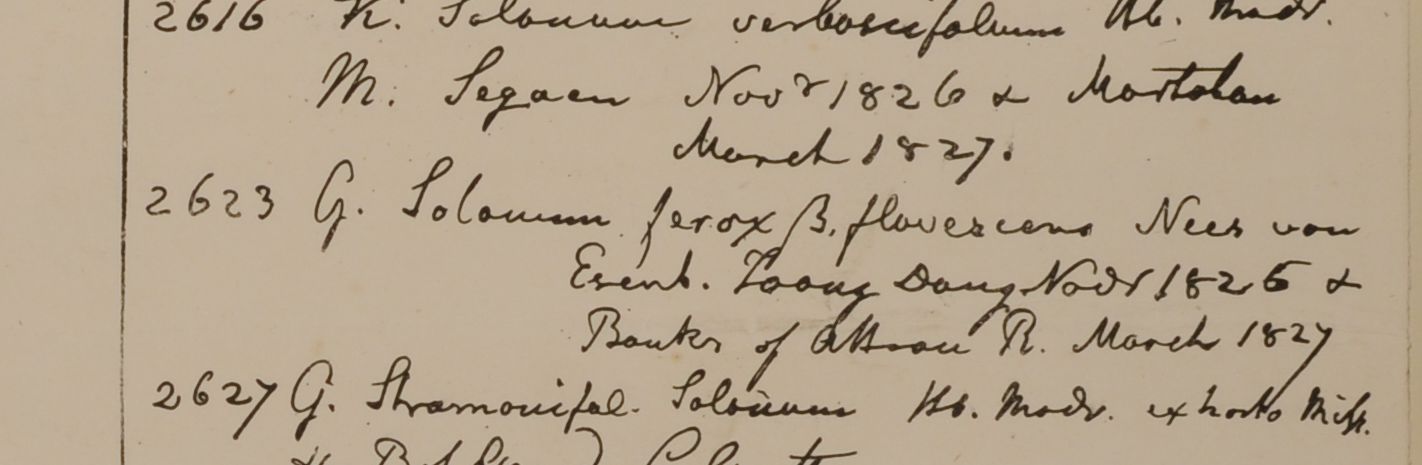 2616 K. Solanum verbascifolium Hb. Madr.
M. Segaen Novr 1826 & Martaban
March 1827.
2623 G. Solanum ferox β. flavescens Nees von
Esenb. Toong Dong Novr 1826 &
Banks of Attran R. March 1827
2627 G. Stramonifol. Solanum Hb. Madr. ex horto Miss.